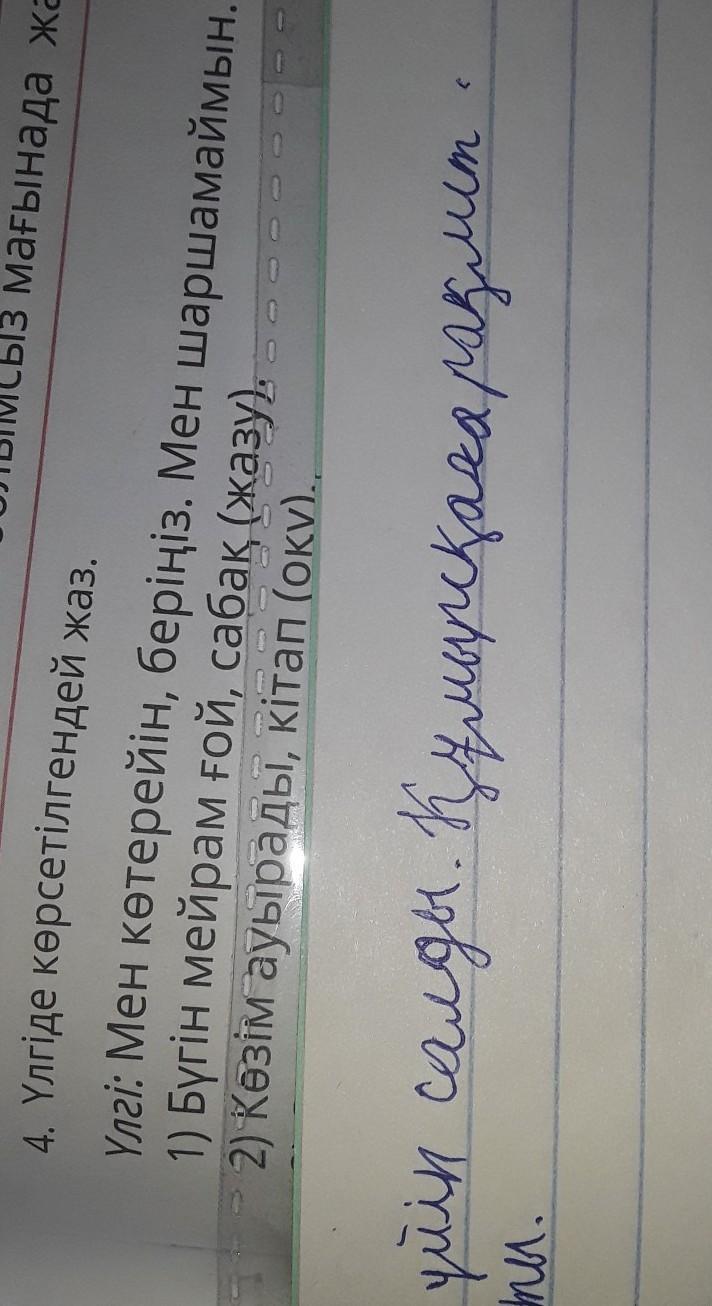 мағынада
4. Үлгіде көрсетілгендей жаз.
Үлгі: Мен көтерейін, беріңіз. Мен шаршамаймын.
1) Бүгін мейрам ғой, сабақ (жазу).
2) Көзім ауырады, кітап (оқу).
үйін салды. Құмырсқаға рақмет
ты.